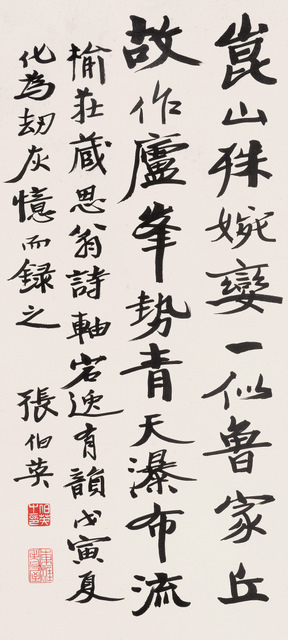 崑山殊婉孌一似魯家丘
故作廬峯勢青天瀑布流
榆莊藏思翁詩軸宕逸有韻戊寅夏
化為劫灰憶而録之
張伯英